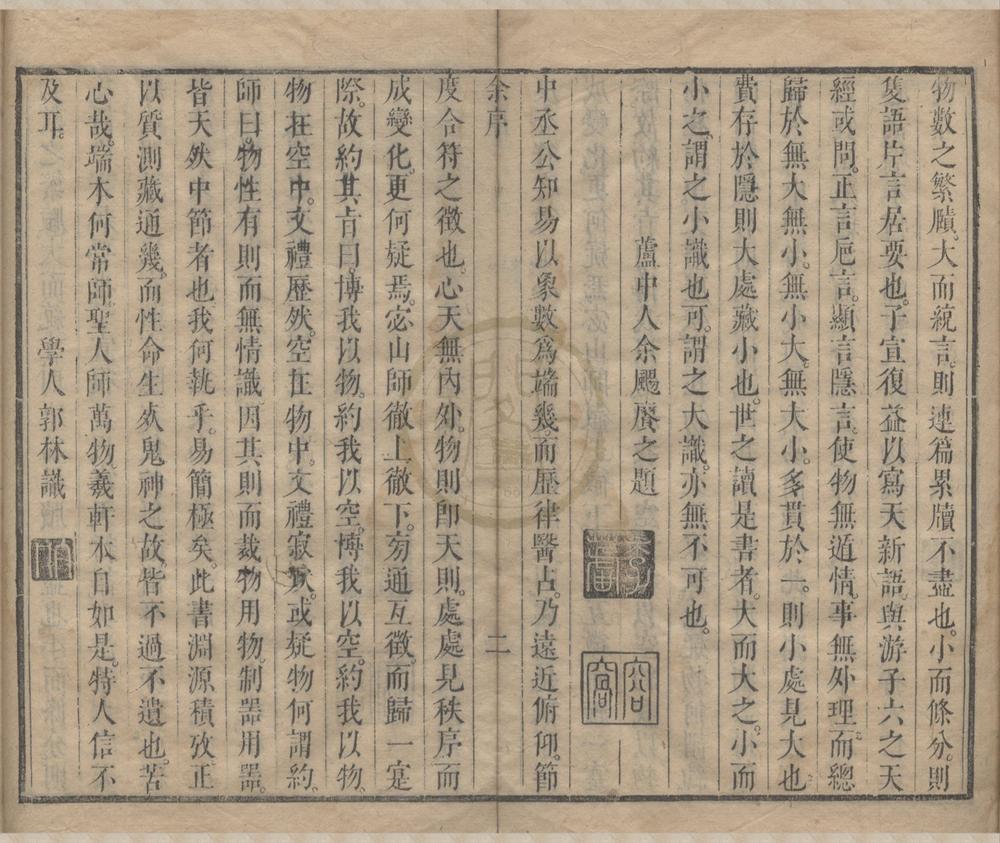 物數之繁賾大而統言則連篇累牘不盡也小而條分則
隻語片言居要也子宣復益以寫天新語與游子六之天
經或問正言巵言顯言隱言使物無遁情事無外理而總
歸於無大無小無小大無大小多貫於一則小處見大也
費存於隱則大處藏小也世之讀是書者大而大之小而
小之謂之小識也可謂之大識亦無不可也
蘆中人余颺賡之題
中丞公知易以象數爲端幾而歷律醫占乃遠近俯仰節
余序
二
度合符之徵也心天無內外物則即天則處處見秩序而
成變化更何疑焉宓山師徹上徹下旁通互徵而歸一寔
際故約其旨曰博我以物約我以空博我以空約我以物
物在空中文禮歷然空在物中文禮寂然或疑物何謂約
師曰物性有則而無情識因其則而裁物用物制器用器
皆天然中節者也我何執乎易簡極矣此書淵源積攷正
以質測藏通幾而性命生死鬼神之故皆不過不遺也苦
心哉端木何常師聖人師萬物羲軒本自如是特人信不
及耳
學人郭林識